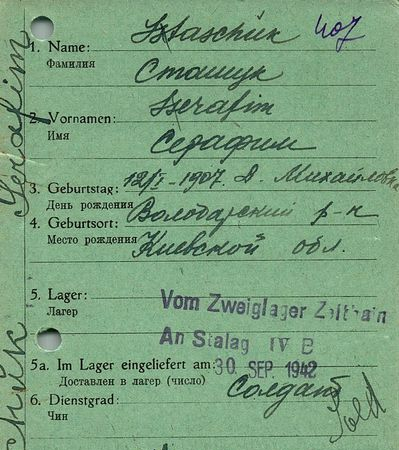 Sztaschúk 407
1. Name:
Фамилия
Сташук
Szerafim
2. Vornamen:
Имя
Серафим
3. Geburtstag: 12/I-1907. д. Михайловка
День рождения
4. Geburtsort: Володарский р-н
Место рождения Киевской обл.
5. Lager:
Лагер
Vom Zweiglager Zeithain
An Stalag IV B
5a. Im Lager eingeliefert am: 30. SEP. 1942
Доставлен в лагер (число)
6. Dienstgrad: Солдат
Чин
Sold
Serafim